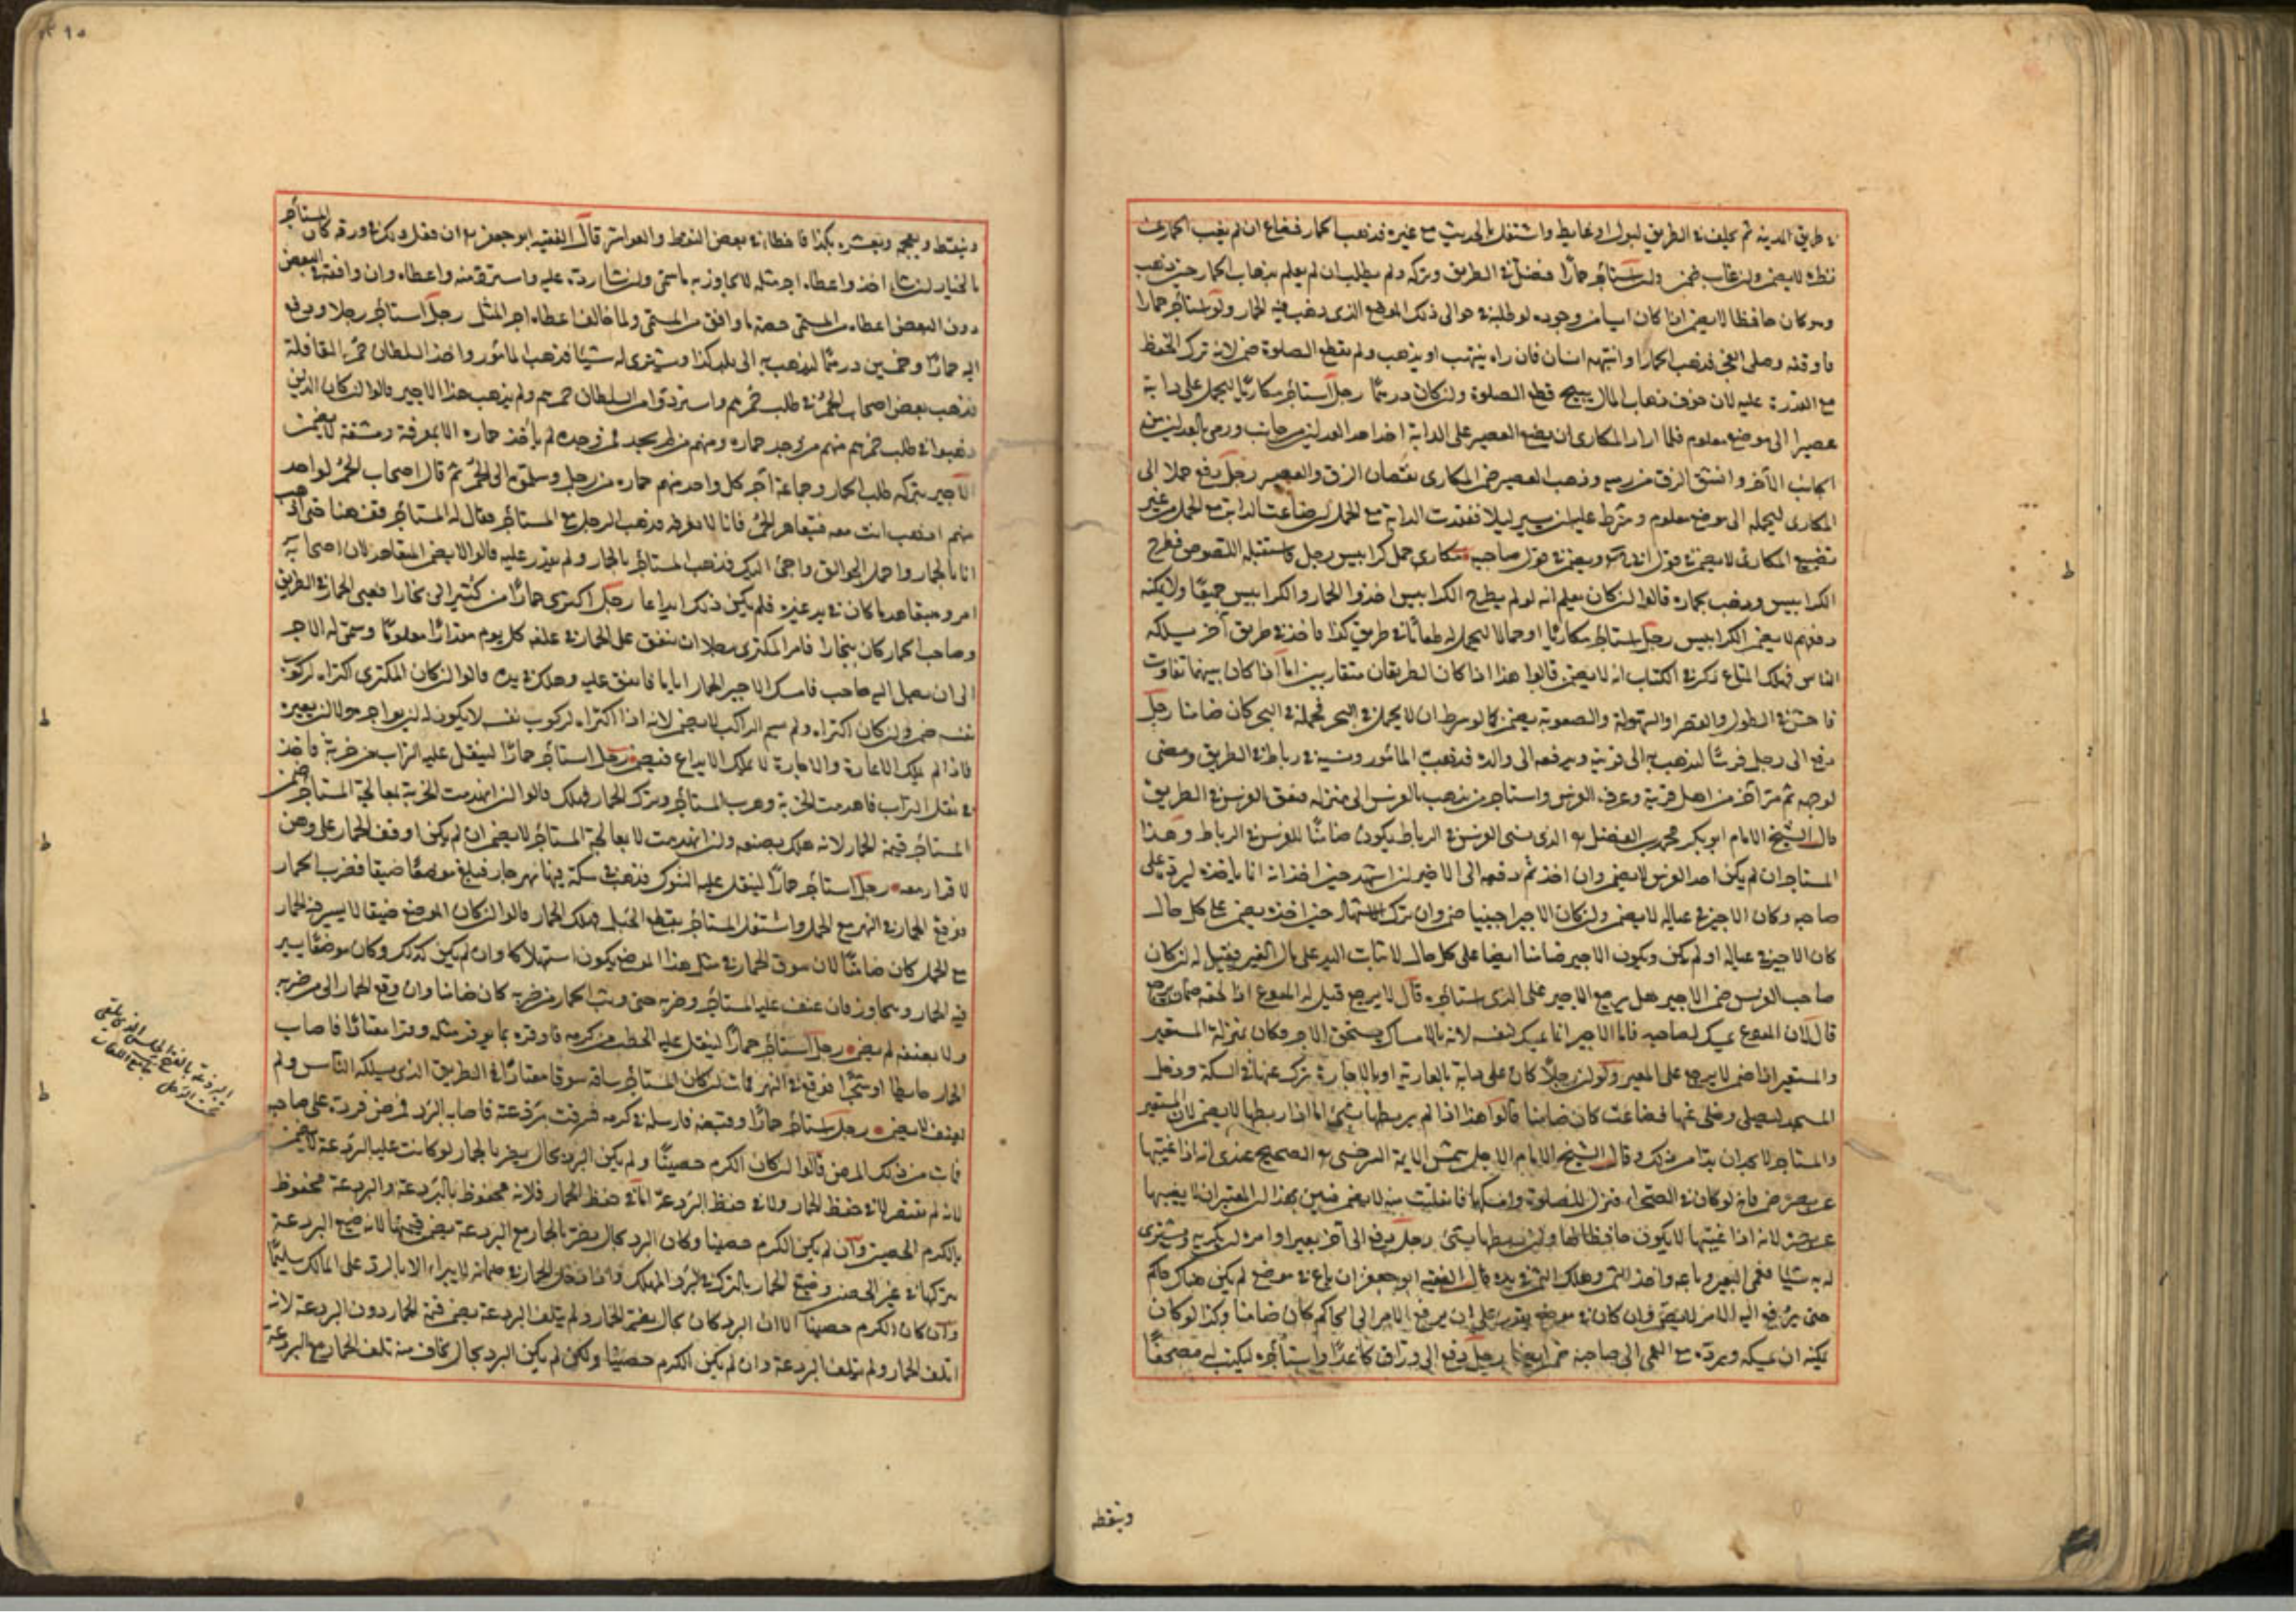 في طريق المدينة ثم تخلف في الطريق لبول او غائط واشتغل بالحديث مع غيره فذهب الحمار فضاع ان لم يغب الحمار عن
نظره لا يضمن وان غاب ضمن ولو استأجر حمارا فضل في الطريق وتركه ولم يطلب ان لم يعلم بذهاب الحمار حين ذهب
وهو كان حافظا لا يضمن اذا كان ايسا من وجوده لو طلبه في حوالى ذلك الموضع الذى ذهب فيه الحمار ولو استأجر حمارا
فاوقفه وصلى الفجر فذهب الحمار او انتهبه انسان فان راه ينتهب او يذهب ولم يقطع الصلوة ضمن لانه ترك الحفظ
مع القدرة عليه لان خوف ذهاب المال يبيح قطع الصلوة وان كان درهما رجل استأجر مكاريا ليحمل على دابة
عصيرا الى موضع معلوم فلما اراد المكارى ان يضع العصير على الدابة اخذ احد العدلين من جانب ورمى بالعدل من
الجانب الآخر وانشق الزق من رميه وذهب العصير ضمن المكارى نقصان الزق والعصير رجل دفع حملا الى
المكارى ليحمله الى موضع معلوم وشرط عليه ان يسير ليلا ففقدت الدابة مع الحمل ان ضاعت الدابة مع الحمل من غير
تضييع المكارى لا يضمن في قول ويضمن في قول صاحبيه مكارى حمل كرابيس رجل فاستقبله اللصوص فطرح
الكرابيس وذهب بحماره قالوا ان كان يعلم انه لو لم يطرح الكرابيس اخذوا الحمار والكرابيس جميعا ولا يمكنه
دفعهم لا يضمن الكرابيس رجل استأجر مكاريا او حمالا ليحمل له طعاما في طريق كذا فاخذ في طريق آخر يسلكه
الناس فهلك المتاع ذكر في الكتاب انه لا يضمن قالوا هذا اذا كان الطريقان متقاربين اما اذا كان بينهما تفاوت
فاحش في الطول والقصر والسهولة والصعوبة يضمن كما لو شرط ان لا يحمل في البحر فحمله في البحر كان ضامنا رجل
دفع الى رجل فرسا ليذهب به الى قريته ويدفعه الى والده فذهب المأمور ونسيه في رباط في الطريق ومضى
لوجهه ثم مر آخر من اهل قريته وعرف الفرس واستأجر من يذهب بالفرس الى منزله فنفق الفرس في الطريق
قال الشيخ الامام ابو بكر محمد بن الفضل الذى نسى الفرس في الرباط يكون ضامنا للفرس في الرباط وهذا
المستاجر ان لم يكن اخذ الفرس لا يضمن وان اخذ ثم دفعه الى الاجير ان اشهد حين اخذ انه انما ياخذه ليرده على
صاحبه وكان الاجير في عياله لا يضمن وان كان الاجير اجنبيا ضمن وان ترك الاشهاد حين اخذه يضمن على كل حال
كان الاجير في عياله او لم يكن ويكون الاجير ضامنا ايضا على كل حال لاثبات اليد على مال الغير فقيل له ان كان
صاحب الفرس ضمن الاجير هل يرجع الاجير على الذى استأجره قال لا يرجع قيل له المودع اذا لحقه ضمان يرجع
قال لان المودع يمسك لصاحبه فاما الاجير انما يمسك لنفسه لانه بالامساك يستحق الاجر فكان بمنزلة المستعير
والمستعير اذا ضمن لا يرجع على المعير ولو ان رجلا كان على دابة بالعارية او بالاجارة نزل عنها في السكة ودخل
المسجد ليصلى وخلى عنها فضاعت كان ضامنا قالوا هذا اذا لم يربطها بشئ اما اذا ربطها لا يضمن لان المستعير
والمستاجر لا يجدان بدا من ذلك وقال الشيخ الامام الاجل شمس الايمة السرخسى الصحيح عندى انه اذا غيبها
عن بصره ضمن فانه لو كان في الصحراء فنزل للصلوة وامسكها فانفلتت منه لا يضمن فتبين بهذا ان المعتبر ان لا يغيبها
عن بصره لانه اذا غيبها لا يكون حافظا لها وان ربطها بشئ رجل دفع الى آخر بعيرا وامره ان يكريه ويشترى
له به شيئا فعمى البعير وباعه واخذ الثمن وهلك الثمن في يده قال الفقيه ابو جعفر ان باع في موضع لم يكن هناك حاكم
حتى يرفع اليه الامر لا يضمن وان كان في موضع يقدر على ان يرفع الامر الى الحاكم كان ضامنا وكذا لو كان
يمكنه ان يمسكه ويرده مع العمى الى صاحبه ضمن ايضا رجل دفع الى وراق كاغدا واستأجره ليكتب له مصحفا
وينقطه
وينقطه ويعجمه ويعشره بكذا فاخطأ في بعض النقط والعواشر قال الفقيه ابو جعفر ان فعل ذلك في ورقه كان المستأجر
بالخيار ان شاء اخذ واعطاه اجر مثله لا يجاوز به ما سمى وان شاء رده عليه واسترد منه ما اعطاه وان وافقه في البعض
دون البعض اعطاه من المسمى حصة ما وافق من المسمى ولما خالف اعطاه اجر المثل رجل استأجر رجلا ودفع
اليه حمارا وخمسين درهما ليذهب به الى بلد كذا ويشترى له شيئا فذهب المأمور واخذ السلطان حمر القافلة
فذهب بعض اصحاب الحمر في طلب حمرهم واستردوا من السلطان حمرهم ولم يذهب هذا الاجير قالوا ان كان الذين
ذهبوا في طلب حمرهم منهم من وجد حماره ومنهم من لم يجد فمن وجده لم يأخذ حماره الا بموفة ومشقة لا يضمن
الاجير بتركه طلب الحمار وجماعة آجر كل واحد منهم حماره من رجل وسلموا الى الحمر ثم قال اصحاب الحمر لواحد
منهم اذهب انت معه فتتعاهد الحمر فانا لا نعرفه فذهب الرجل مع المستأجر فقال له المستأجر قف هنا حتى اذهب
انا بالحمار واحمل الجوالق واجئ اليك فذهب المستأجر بالحمار ولم يقدر عليه قالوا لا يضمن المتعاهد لان اصحابه
امروه بتعاهد ما كان في يد غيره فلم يكن ذلك ايداعا رجل اكترى حمارا من كش الى بخارا فعيى الحمار في الطريق
وصاحب الحمار كان ببخارا فامر المكترى رجلا ان ينفق على الحمار في علفه كل يوم مقدارا معلوما وسمى له الاجر
الى ان يصل اليه صاحبه فامسك الاجير الحمار اياما فانفق عليه وهلك في يده قالوا ان كان المكترى اكتراه لركوب
نفسه ضمن وان كان اكتراه ولم يسم الراكب لا يضمن لانه اذا اكتراه لركوب نفسه لا يكون له ان يواجر ولا ان يعيره
فاذا لم يملك الاعارة والاجارة لا يملك الايداع فيضمن رجل استأجر حمارا لينقل عليه التراب من خربة فاخذ
في نقل التراب فانهدمت الخربة وهرب المستأجر وترك الحمار فهلك قالوا ان انهدمت الخربة بمعالجة المستاجر ضمن
المستأجر قيمة الحمار لانه هلك بصنعه وان انهدمت لا بمعالجة المستأجر لا يضمن ان لم يكن اوقف الحمار على وهن
لا قرار معه رجل استأجر حمارا لينقل عليه الشوك فذهب في سكة فيها نهر جار فبلغ موضعا ضيقا فضرب الحمار
فوقع الحمار في النهر مع الحمل واشتغل المستأجر بقطع الحبل فهلك الحمار قالوا ان كان الموضع ضيقا لا يسير فيه الحمار
مع الحمل كان ضامنا لان سوق الحمار في مثل هذا الموضع يكون استهلاكا وان لم يكن كذلك وكان موضعا يسير
فيه الحمار ويتجاوز فان عنف عليه المستأجر وضربه حتى وثب الحمار من ضربه كان ضامنا وان وقع الحمار لا من ضربه
ولا بعنفه لم يضمن رجل استأجر حمارا لينقل عليه الحطب من كرمه فاوقره بما يوقر مثله وقرا معتادا فاصاب
الحمار حايطا او شجرا فوقع في النهر فمات ان كان المستأجر ساقه سوقا معتادا في الطريق الذى يسلكه الناس ولم
يعنف لا يضمن رجل استأجر حمارا وقبضه فارسله في كرمه فسرقت برذعته فاصابه البرد فمرض فرده على صاحبه
فمات من ذلك المرض قالوا ان كان الكرم حصينا ولم يكن البرد بحال يضر بالحمار لو كانت عليه البرذعة لا يضمن
لانه لم يقصر لا في حفظ الحمار ولا في حفظ البرذعة اما في حفظ الحمار فلانه محفوظ بالبرذعة والبرذعة محفوظة
بالكرم الحصين وان لم يكن الكرم حصينا وكان البرد بحال يضر بالحمار مع البرذعة يضمن قيمتها لانه ضيع البرذعة
بتركها في غير الحصن وضيع الحمار بالترك في البرد المهلك واذا دخل الحمار في ضمانه لا يبراء الا بالرد على المالك سليما
وان كان الكرم حصينا الا ان البرد كان بحال يضر الحمار ولم يتلف البرذعة يضمن قيمة الحمار دون البرذعة لانه
اتلف الحمار ولم يتلف البرذعة وان لم يكن الكرم حصينا ولكن لم يكن البرد بحال يخاف منه تلف الحمار مع البرذعة
البرذعة بالفتح الحلس الذى يلقى
تحت الرحل جامع اللغات